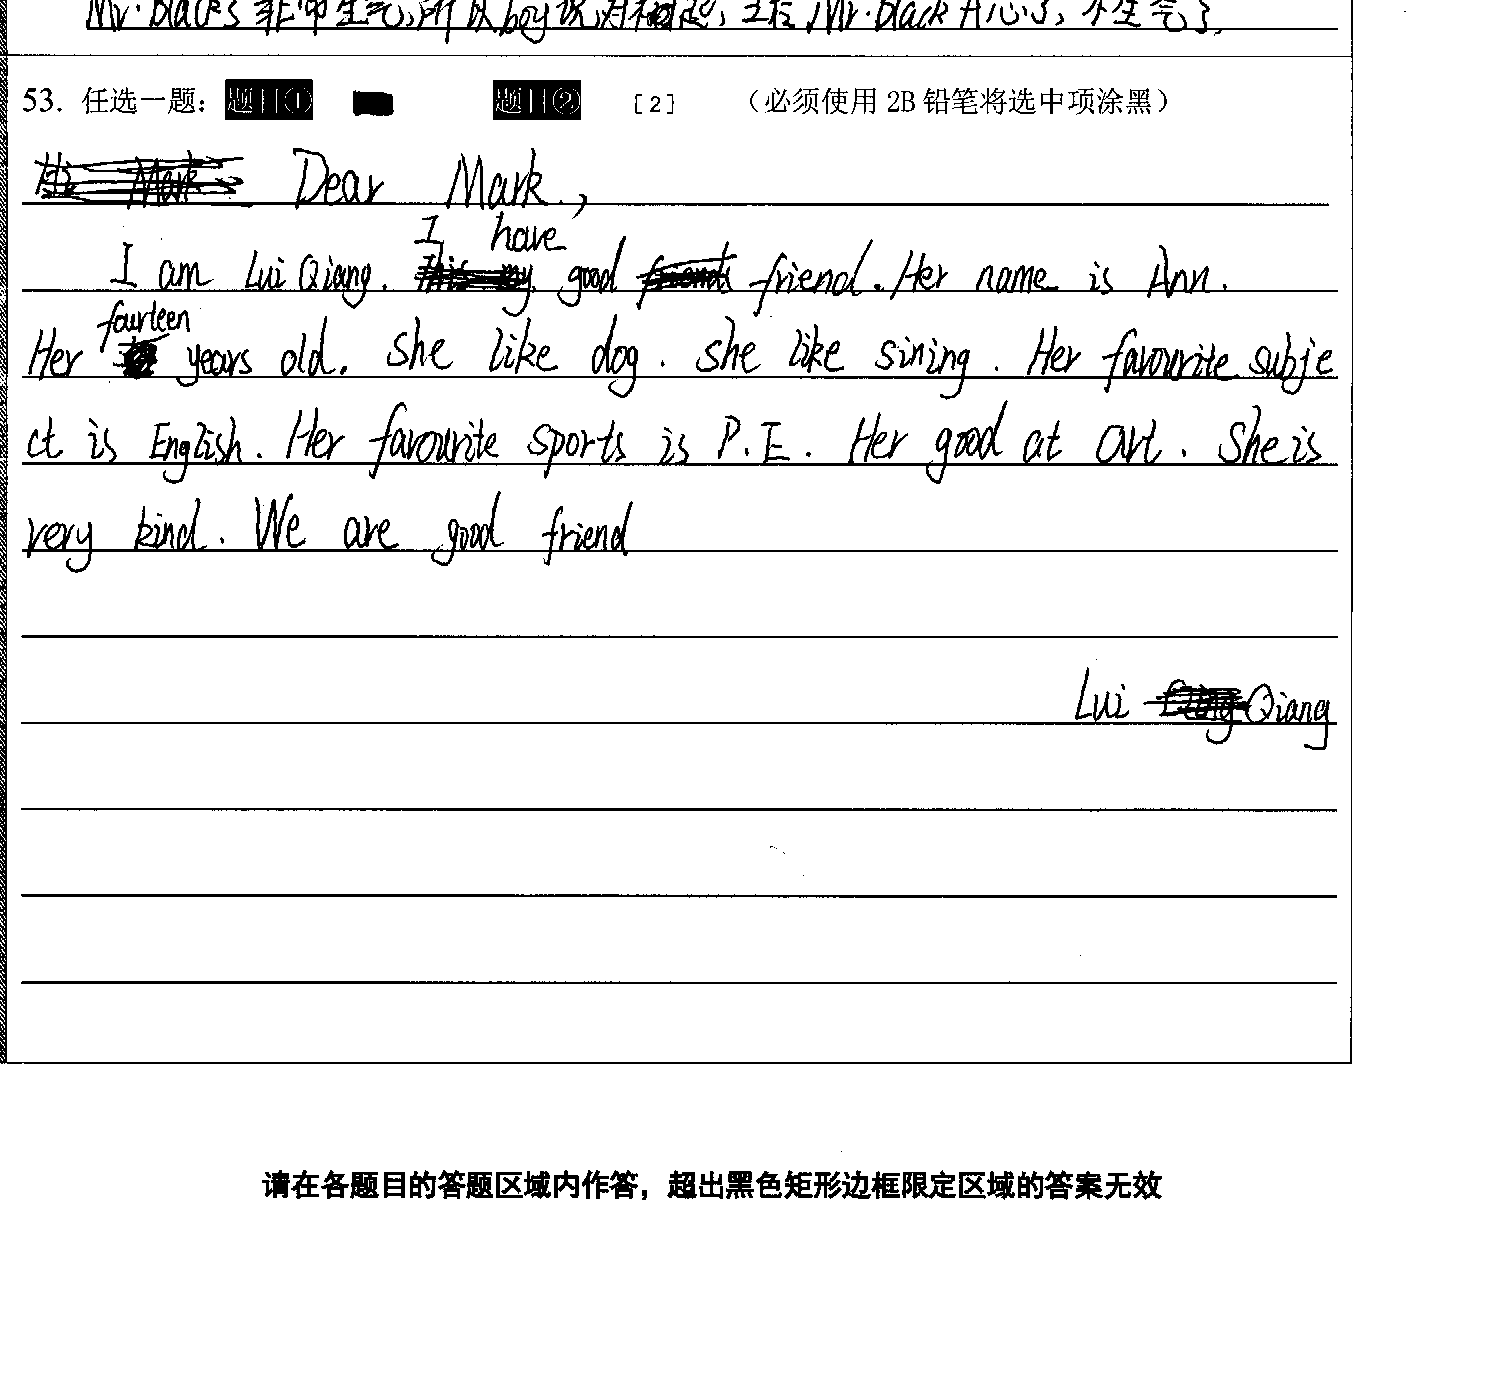 Mr. Black's 非常生气,所以boy说对不起,
53. 任选一题: 题目① 题目② [2] (必须使用 2B 铅笔将选中项涂黑)
Dear Mark.,
I have
I am Lui Qiang. good friend. Her name is Ann.
fourteen
Her years old. She like dog. She like sining. Her favourite subje
ct is English. Her favourite sports is P.E. Her good at art. She is
very kind. We are good friend
Lui Qiang
请在各题目的答题区域内作答，超出黑色矩形边框限定区域的答案无效